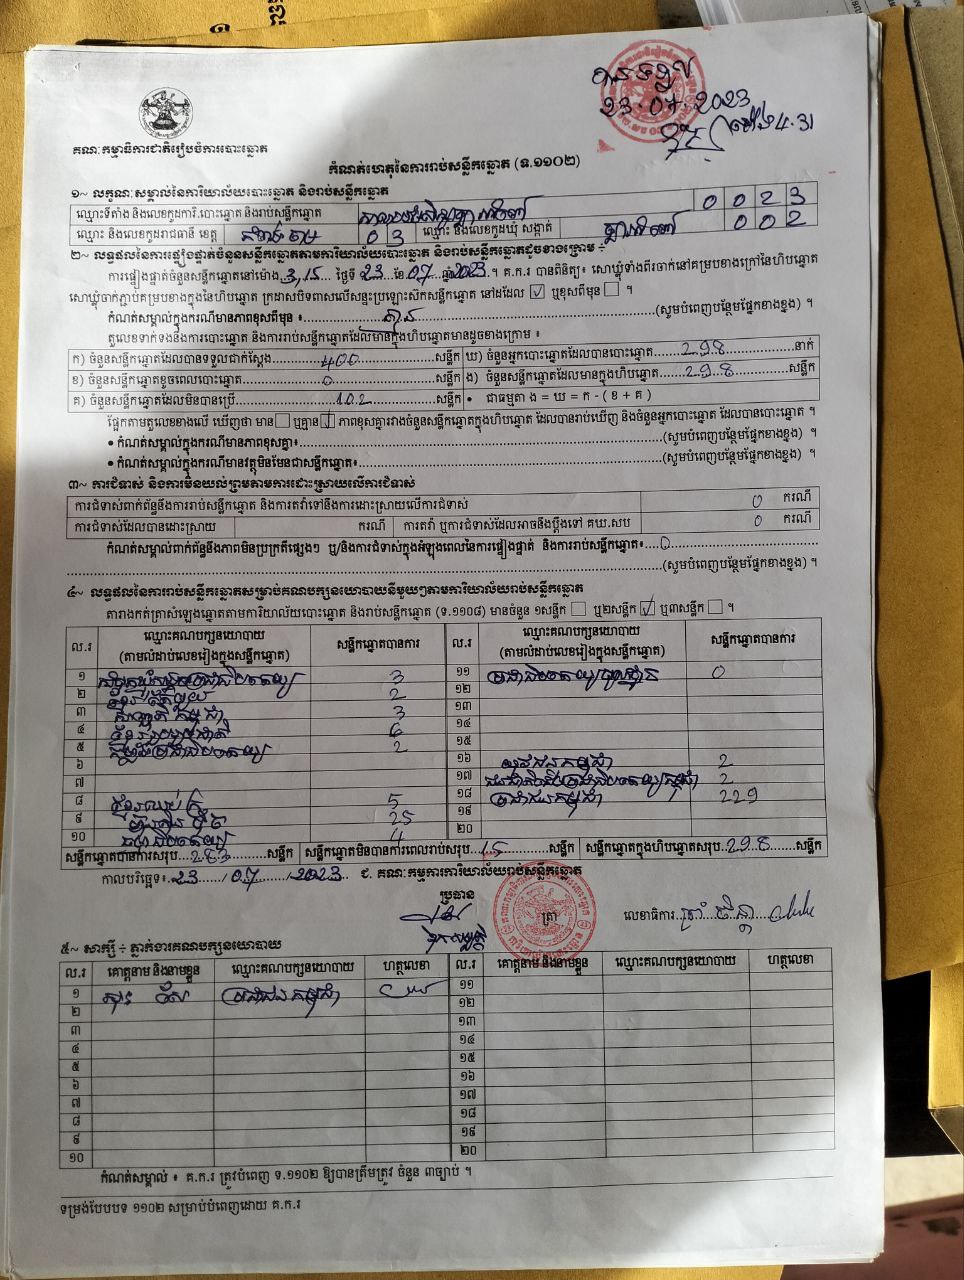 បានទទួល
23.07.2023
ម៉ោង 4.31
គណៈកម្មាធិការជាតិរៀបចំការបោះឆ្នោត
កំណត់ហេតុនៃការរាប់សន្លឹកឆ្នោត (ទ.១១០២)
១~ លក្ខណៈសម្គាល់នៃការិយាល័យបោះឆ្នោត និងរាប់សន្លឹកឆ្នោត
ឈ្មោះទីតាំង និងលេខកូដការិ.បោះឆ្នោត និងរាប់សន្លឹកឆ្នោត 0023
ឈ្មោះ និងលេខកូដរាជធានី ខេត្ត កំពង់ចាម 03 ឈ្មោះ និងលេខកូដឃុំ សង្កាត់ 002
២~ លទ្ធផលនៃការផ្ទៀងផ្ទាត់ចំនួនសន្លឹកឆ្នោតតាមការិយាល័យបោះឆ្នោត និងរាប់សន្លឹកឆ្នោតដូចខាងក្រោម ÷
ការផ្ទៀងផ្ទាត់ចំនួនសន្លឹកឆ្នោតនៅម៉ោង 3,15 ថ្ងៃទី 23 ខែ 07 ឆ្នាំ 2023 ។ គ.ក.រ បានពិនិត្យ៖ សោឃ្លុំទាំងពីរចាក់នៅគម្របខាងក្រៅនៃហិបឆ្នោត
សោឃ្លុំចាក់ភ្ជាប់គម្របខាងក្នុងនៃហិបឆ្នោត ក្រដាសបិទពាសលើសន្ទះប្រឡោះស៊កសន្លឹកឆ្នោត នៅដដែល ☑ ឬខុសពីមុន ☐ ។
កំណត់សម្គាល់ក្នុងករណីមានភាពខុសពីមុន ៖ គ្មាន (សូមបំពេញបន្ថែមផ្នែកខាងខ្នង) ។
តួលេខទាក់ទងនឹងការបោះឆ្នោត និងការរាប់សន្លឹកឆ្នោតដែលមានក្នុងហិបឆ្នោតមានដូចខាងក្រោម ៖
ក) ចំនួនសន្លឹកឆ្នោតដែលបានទទួលជាក់ស្តែង 400 សន្លឹក ឃ) ចំនួនអ្នកបោះឆ្នោតដែលបានបោះឆ្នោត 298 នាក់
ខ) ចំនួនសន្លឹកឆ្នោតខូចពេលបោះឆ្នោត 0 សន្លឹក ង) ចំនួនសន្លឹកឆ្នោតដែលមានក្នុងហិបឆ្នោត 298 សន្លឹក
គ) ចំនួនសន្លឹកឆ្នោតដែលមិនបានប្រើ 102 សន្លឹក • ជាធម្មតា ង = ឃ = ក - ( ខ + គ )
ផ្អែកតាមតួលេខខាងលើ ឃើញថា មាន ☐ ឬគ្មាន ☑ ភាពខុសគ្នារវាងចំនួនសន្លឹកឆ្នោតក្នុងហិបឆ្នោត ដែលបានរាប់ឃើញ និងចំនួនអ្នកបោះឆ្នោត ដែលបានបោះឆ្នោត ។
• កំណត់សម្គាល់ក្នុងករណីមានភាពខុសគ្នា៖ (សូមបំពេញបន្ថែមផ្នែកខាងខ្នង) ។
• កំណត់សម្គាល់ក្នុងករណីមានវត្ថុមិនមែនជាសន្លឹកឆ្នោត៖ (សូមបំពេញបន្ថែមផ្នែកខាងខ្នង) ។
៣~ ការជំទាស់ និងការមិនយល់ព្រមតាមការដោះស្រាយលើការជំទាស់
ការជំទាស់ពាក់ព័ន្ធនឹងការរាប់សន្លឹកឆ្នោត និងការតវ៉ាទៅនឹងការដោះស្រាយលើការជំទាស់ 0 ករណី
ការជំទាស់ដែលបានដោះស្រាយ ករណី ការតវ៉ា ឬការជំទាស់ដែលអាចនឹងប្តឹងទៅ គឃ.សប 0 ករណី
កំណត់សម្គាល់ពាក់ព័ន្ធនឹងភាពមិនប្រក្រតីផ្សេងៗ ឬ/និងការជំទាស់ក្នុងអំឡុងពេលនៃការផ្ទៀងផ្ទាត់ និងការរាប់សន្លឹកឆ្នោត៖ 0
(សូមបំពេញបន្ថែមផ្នែកខាងខ្នង) ។
៤~ លទ្ធផលនៃការរាប់សន្លឹកឆ្នោតសម្រាប់គណបក្សនយោបាយនីមួយៗតាមការិយាល័យរាប់សន្លឹកឆ្នោត
តារាងកត់ត្រាសំឡេងឆ្នោតតាមការិយាល័យបោះឆ្នោត និងរាប់សន្លឹកឆ្នោត (ទ.១១០៨) មានចំនួន ១សន្លឹក ☐ ឬ២សន្លឹក ☑ ឬ៣សន្លឹក ☐ ។
ល.រ ឈ្មោះគណបក្សនយោបាយ (តាមលំដាប់លេខរៀងក្នុងសន្លឹកឆ្នោត) សន្លឹកឆ្នោតបានការ ល.រ ឈ្មោះគណបក្សនយោបាយ (តាមលំដាប់លេខរៀងក្នុងសន្លឹកឆ្នោត) សន្លឹកឆ្នោតបានការ
១ 3 ១១ 0
២ 2 ១២
៣ 3 ១៣
៤ 6 ១៤
៥ 2 ១៥
៦ ១៦ យុវជនកម្ពុជា 2
៧ ១៧ 2
៨ 5 ១៨ ប្រជាជនកម្ពុជា 229
៩ 25 ១៩
១០ 4 ២០
សន្លឹកឆ្នោតបានការសរុប 283 សន្លឹក សន្លឹកឆ្នោតមិនបានការពេលរាប់សរុប 15 សន្លឹក សន្លឹកឆ្នោតក្នុងហិបឆ្នោតសរុប 298 សន្លឹក
កាលបរិច្ឆេទ៖ 23/07/2023 ជ. គណៈកម្មការការិយាល័យរាប់សន្លឹកឆ្នោត
ប្រធាន
ត្រា
លេខាធិការ
៥~ សាក្សី ÷ ភ្នាក់ងារគណបក្សនយោបាយ
ល.រ គោត្តនាម និងនាមខ្លួន ឈ្មោះគណបក្សនយោបាយ ហត្ថលេខា ល.រ គោត្តនាម និងនាមខ្លួន ឈ្មោះគណបក្សនយោបាយ ហត្ថលេខា
១ ប្រជាជនកម្ពុជា ១១
២ ១២
៣ ១៣
៤ ១៤
៥ ១៥
៦ ១៦
៧ ១៧
៨ ១៨
៩ ១៩
១០ ២០
កំណត់សម្គាល់ ៖ គ.ក.រ ត្រូវបំពេញ ទ.១១០២ ឱ្យបានត្រឹមត្រូវ ចំនួន ៣ច្បាប់ ។
ទម្រង់បែបបទ ១១០២ សម្រាប់បំពេញដោយ គ.ក.រ